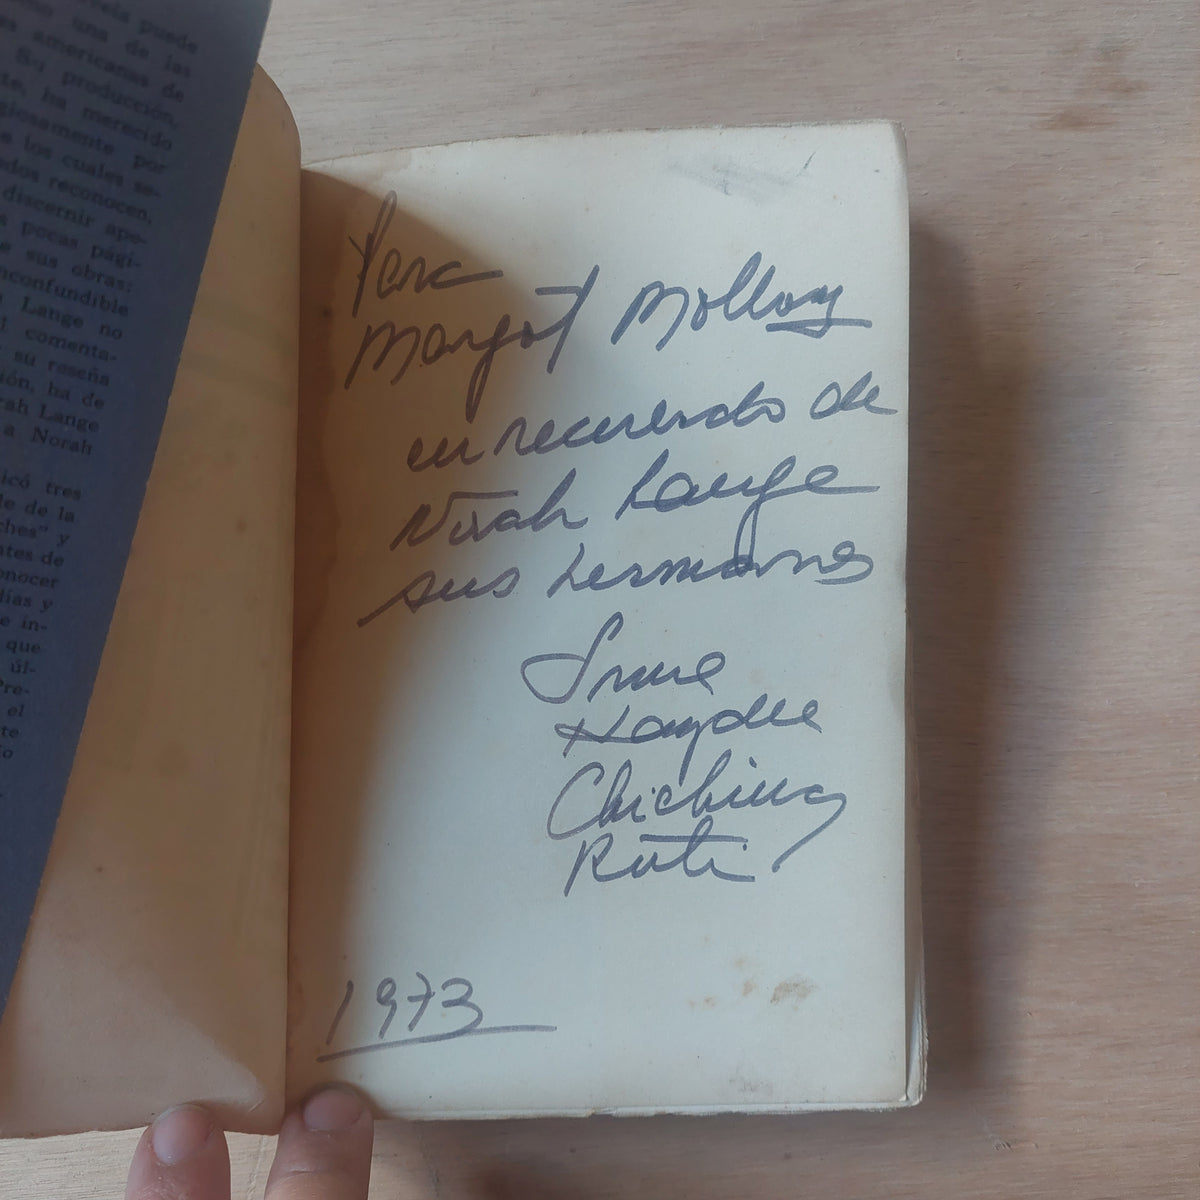 vela puede
una de las
americanas de
Su producción,
te, ha merecido
giosamente por
e los cuales se-
dos reconocen,
discernir ape-
s pocas pági-
e sus obras:
nconfundible
Lange no
l comenta-
su reseña
ión, ha de
rah Lange
a Norah
icó tres
de de la
ches" y
ntes de
onocer
días y
e in-
que
úl-
Pre-
el
te
Para
Margot Molloy
en recuerdo de
Norah Lange
sus hermanas
Irene
Haydée
Chichina
Ruti
1973